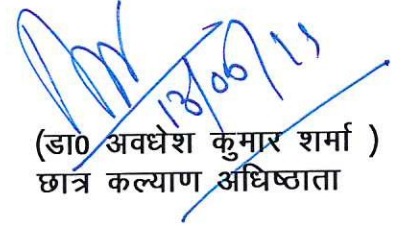 (डा0 अवधेश कुमार शर्मा )
छात्र कल्याण अधिष्ठाता